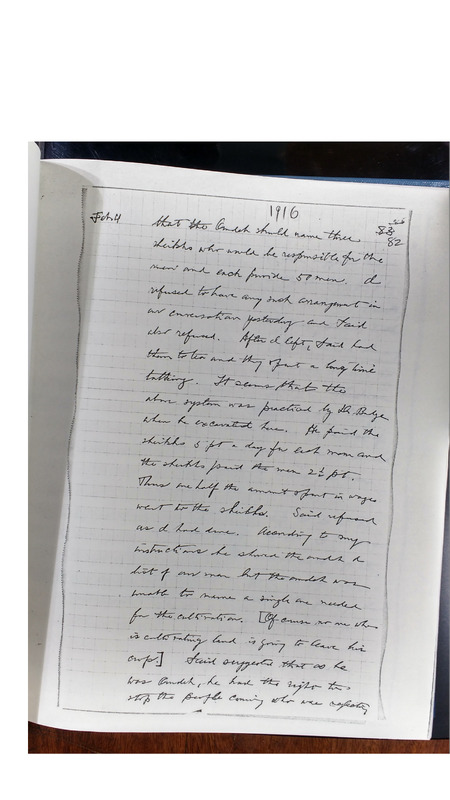 1916
Feb. 4
83
82
that the Omdeh should name three
sheikhs who would be responsible for the
men and each provide 50 men. I
refused to have any such arrangement in
our conversation yesterday and Said
also refused. After I left, Said had
them to tea and they spent a long time
talking. It seems that the
above system was practiced by Dr. Budge
when he excavated here. He paid the
sheikhs 5 pt a day for each man and
the sheikhs paid the men 2½ pt.
Thus one half the amount spent in wages
went to the sheikhs. Said refused
as I had done. According to my
instructions he showed the omdeh a
list of our men but the omdeh was
unable to name a single one needed
for the cultivation. [Of course no one who
is cultivating land is going to leave his
crop.] Said suggested that as he
was Omdeh, he had the right to
stop the people coming who were